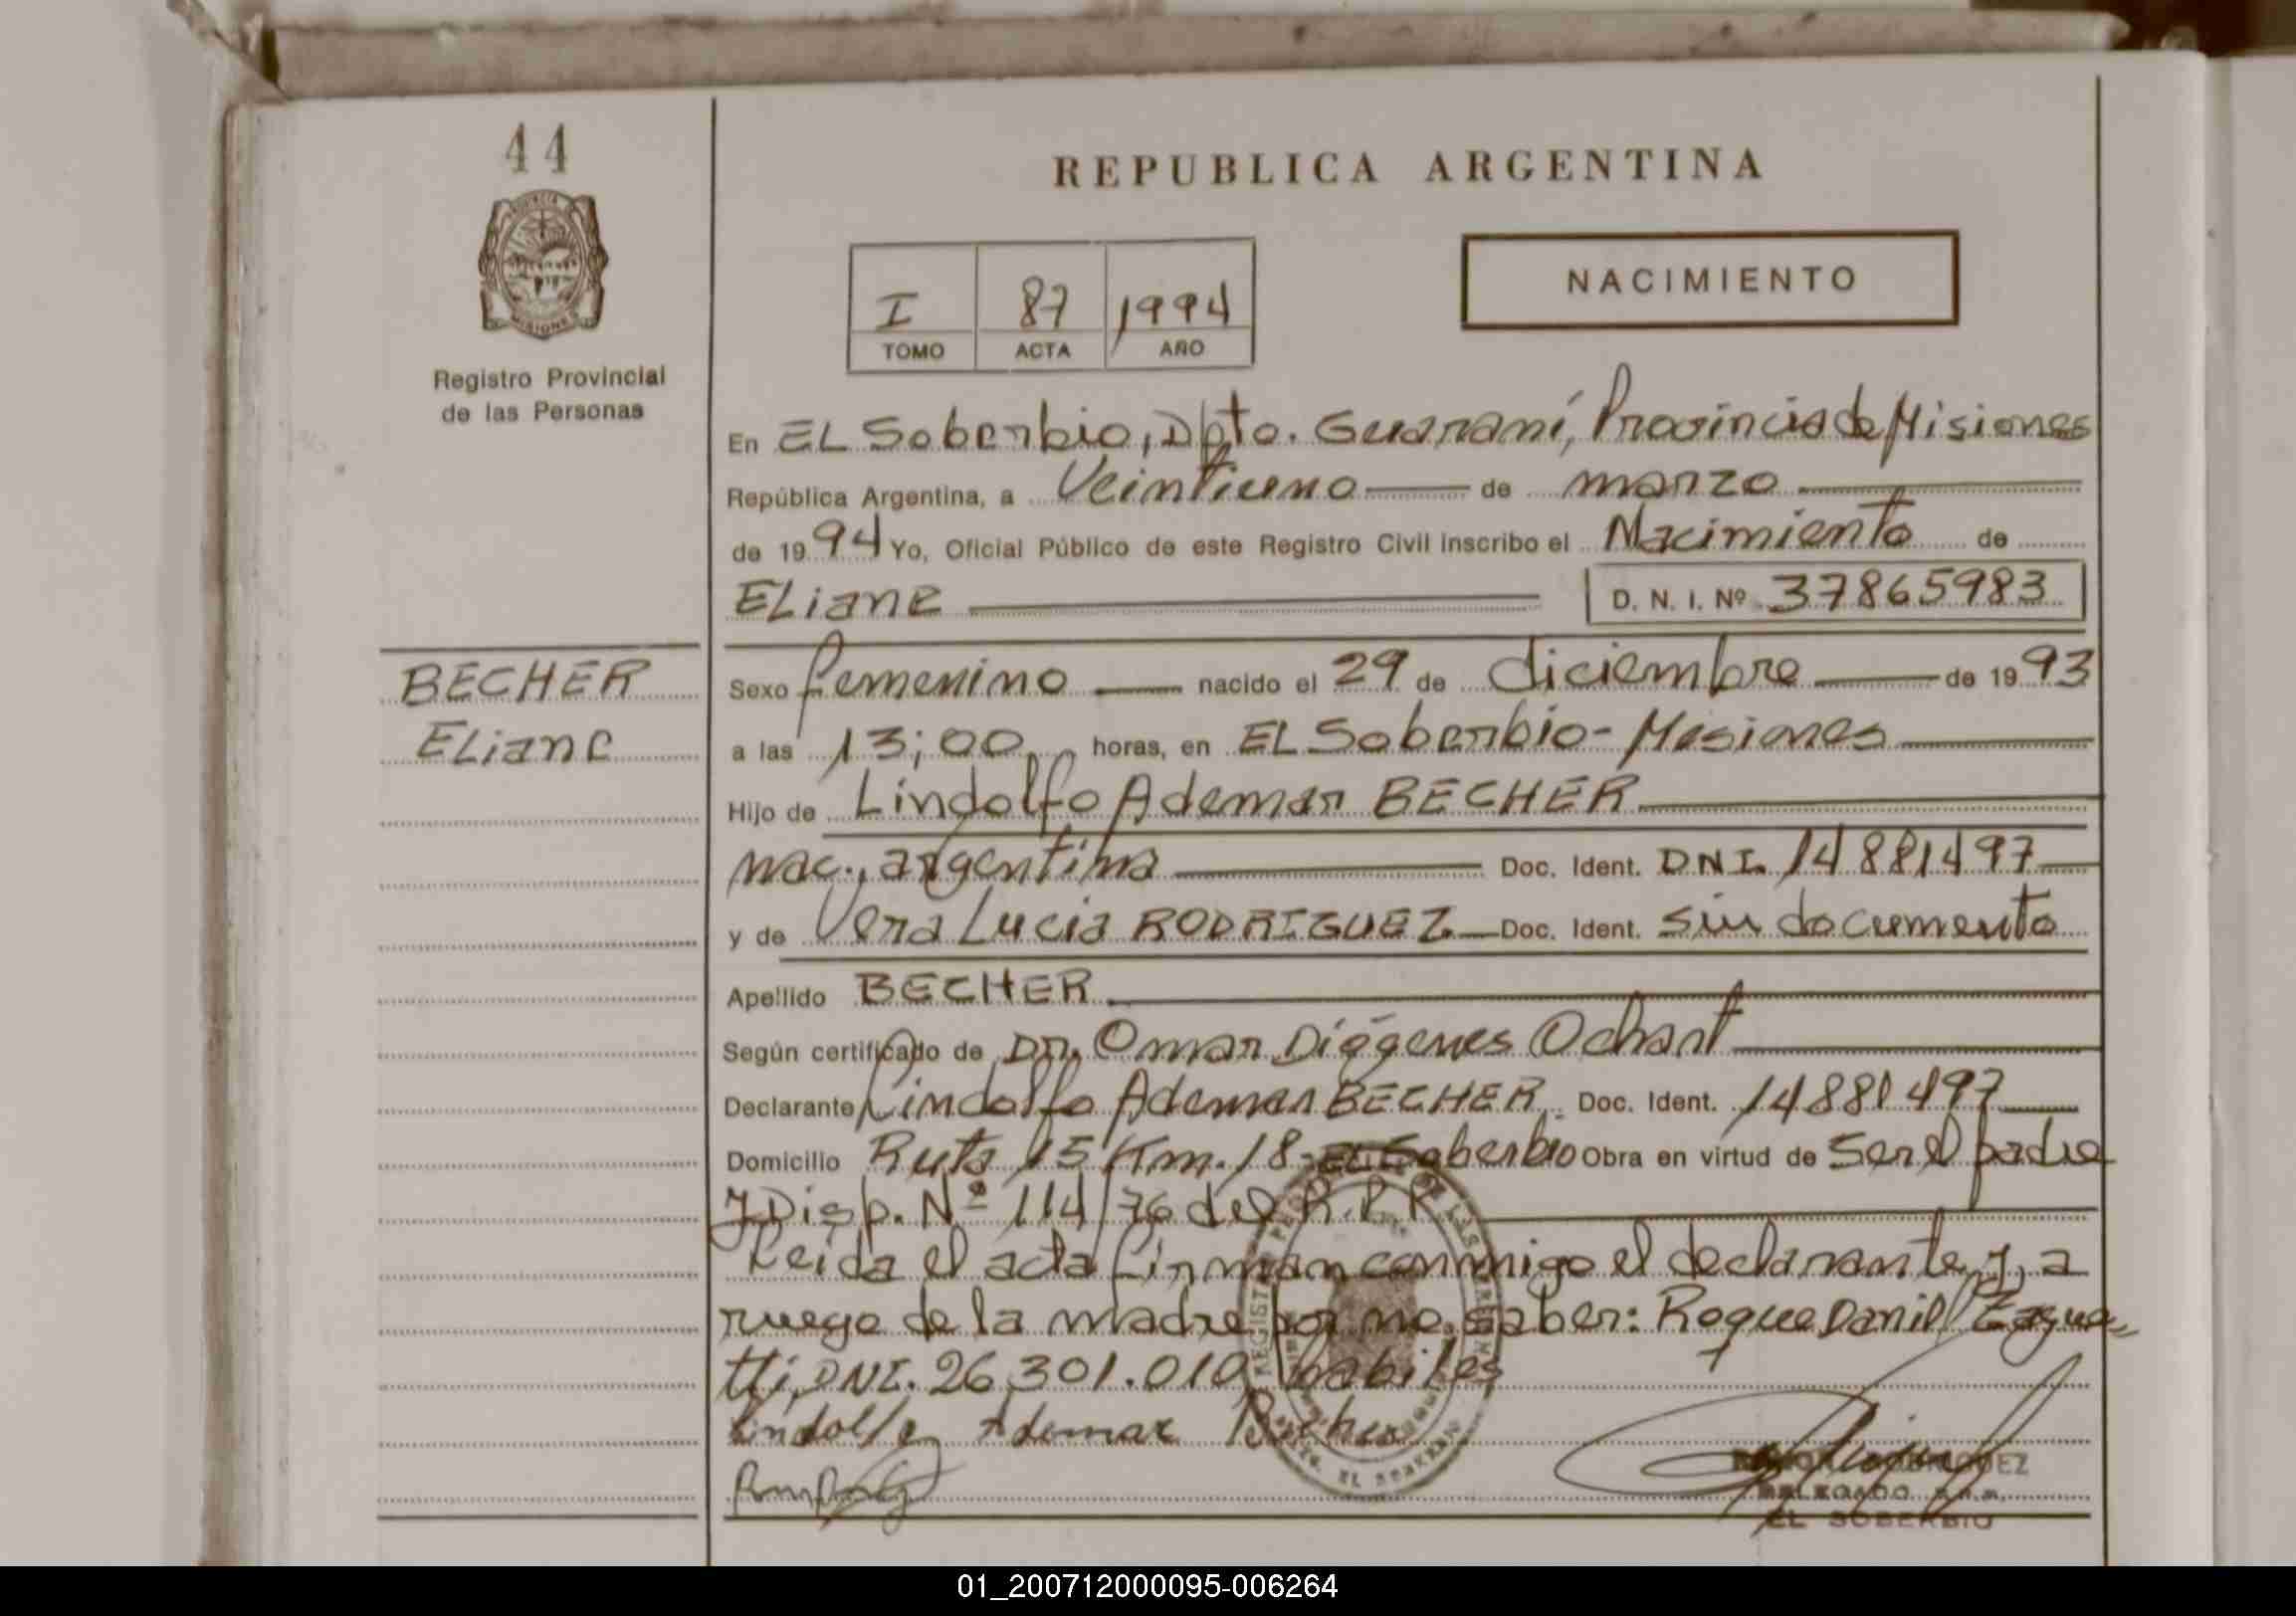 44
REPUBLICA ARGENTINA
PROVINCIA
MISIONES
NACIMIENTO
I 87 1994
TOMO ACTA AÑO
Registro Provincial
de las Personas
En EL Soberbio, Dpto. Guaraní, Provincia de Misiones
República Argentina, a Veintiuno de marzo
de 1994 Yo, Oficial Público de este Registro Civil inscribo el Nacimiento de
ELiane D. N. I. Nº 37865983
BECHER
ELiane
Sexo femenino nacido el 29 de diciembre de 1993
a las 13;00 horas, en EL Soberbio - Misiones
Hijo de Lindolfo Ademar BECHER
nac., argentina Doc. Ident. DNI. 14881497
y de Vera Lucia RODRIGUEZ Doc. Ident. sin documento
Apellido BECHER
Según certificado de Dr. Omar Diógenes Ochart
Declarante Lindolfo Ademar BECHER Doc. Ident. 14881497
Domicilio Ruta 15 Km. 18 - EL Soberbio Obra en virtud de Ser el padre
y Disp. Nº 114/76 del R.P.R
Leida el acta firman conmigo el declarante y, a
ruego de la madre por no saber: Roque Daniel
tti, DNI. 26.301.010, habiles
Lindolfo Ademar Becher
RODRIGUEZ
EL SOBERBIO
01_200712000095-006264